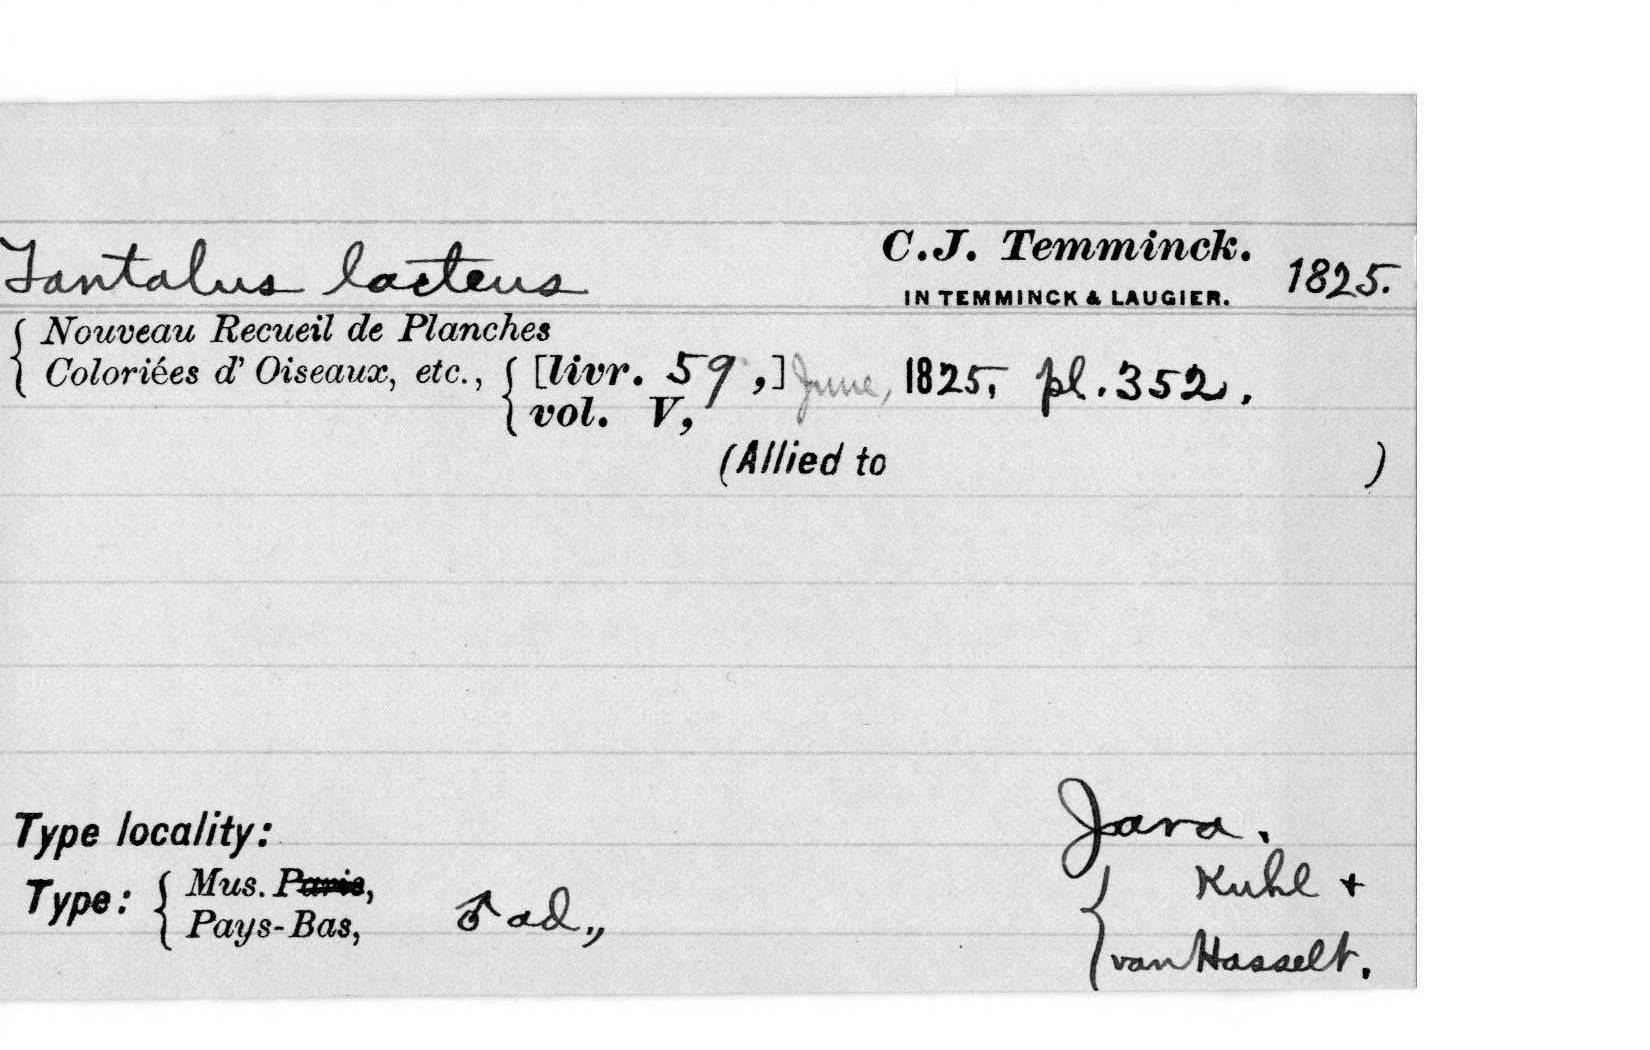 Tantalus lacteus C.J. Temminck. 1825.
IN TEMMINCK & LAUGIER.
Nouveau Recueil de Planches
Coloriées d' Oiseaux, etc., [livr. 59,] June, 1825, pl. 352.
vol. V,
(Allied to )
Type locality: Java.
Type: Mus. Paris, Kuhl +
Pays-Bas, ♂ ad., van Hasselt.